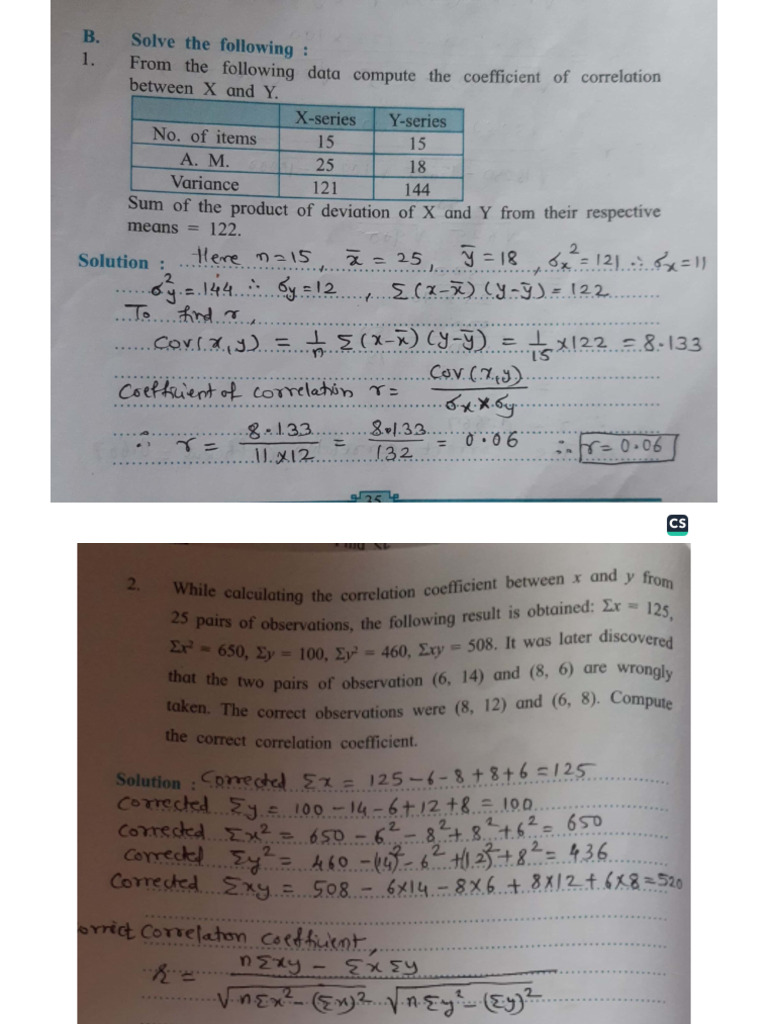 B. Solve the following :
1. From the following data compute the coefficient of correlation
between X and Y.
X-series Y-series
No. of items 15 15
A. M. 25 18
Variance 121 144
Sum of the product of deviation of X and Y from their respective
means = 122.
Solution : Here n=15, x̄ = 25, ȳ = 18, σx² = 121 ∴ σx = 11
σ²y = 144 ∴ σy = 12, Σ(x-x̄)(y-ȳ) = 122
To find r,
Cov(x,y) = 1/n Σ(x-x̄)(y-ȳ) = 1/15 x122 = 8.133
Coefficient of correlation r = Cov(x,y) / σx x σy
∴ r = 8.133 / 11 x 12 = 8.133 / 132 = 0.06 ∴ r = 0.06
25
CS
2. While calculating the correlation coefficient between x and y from
25 pairs of observations, the following result is obtained: Σx = 125,
Σx² = 650, Σy = 100, Σy² = 460, Σxy = 508. It was later discovered
that the two pairs of observation (6, 14) and (8, 6) are wrongly
taken. The correct observations were (8, 12) and (6, 8). Compute
the correct correlation coefficient.
Solution : Corrected Σx = 125-6-8+8+6 = 125
Corrected Σy = 100-14-6+12+8 = 100
Corrected Σx² = 650-6²-8²+8²+6² = 650
Corrected Σy² = 460-(14)²-6²+(12)²+8² = 436
Corrected Σxy = 508 - 6x14 - 8x6 + 8x12 + 6x8 = 520
orrect Correlaton coefficient,
r = nΣxy - ΣxΣy / √nΣx²-(Σx)² √nΣy²-(Σy)²